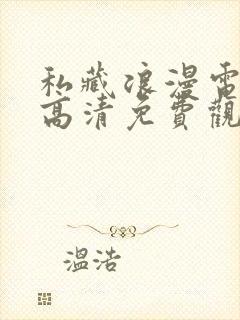 私藏浪漫電
高清免費觀
溫浩